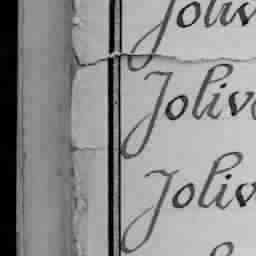 Joliv
Joliv
Joliv